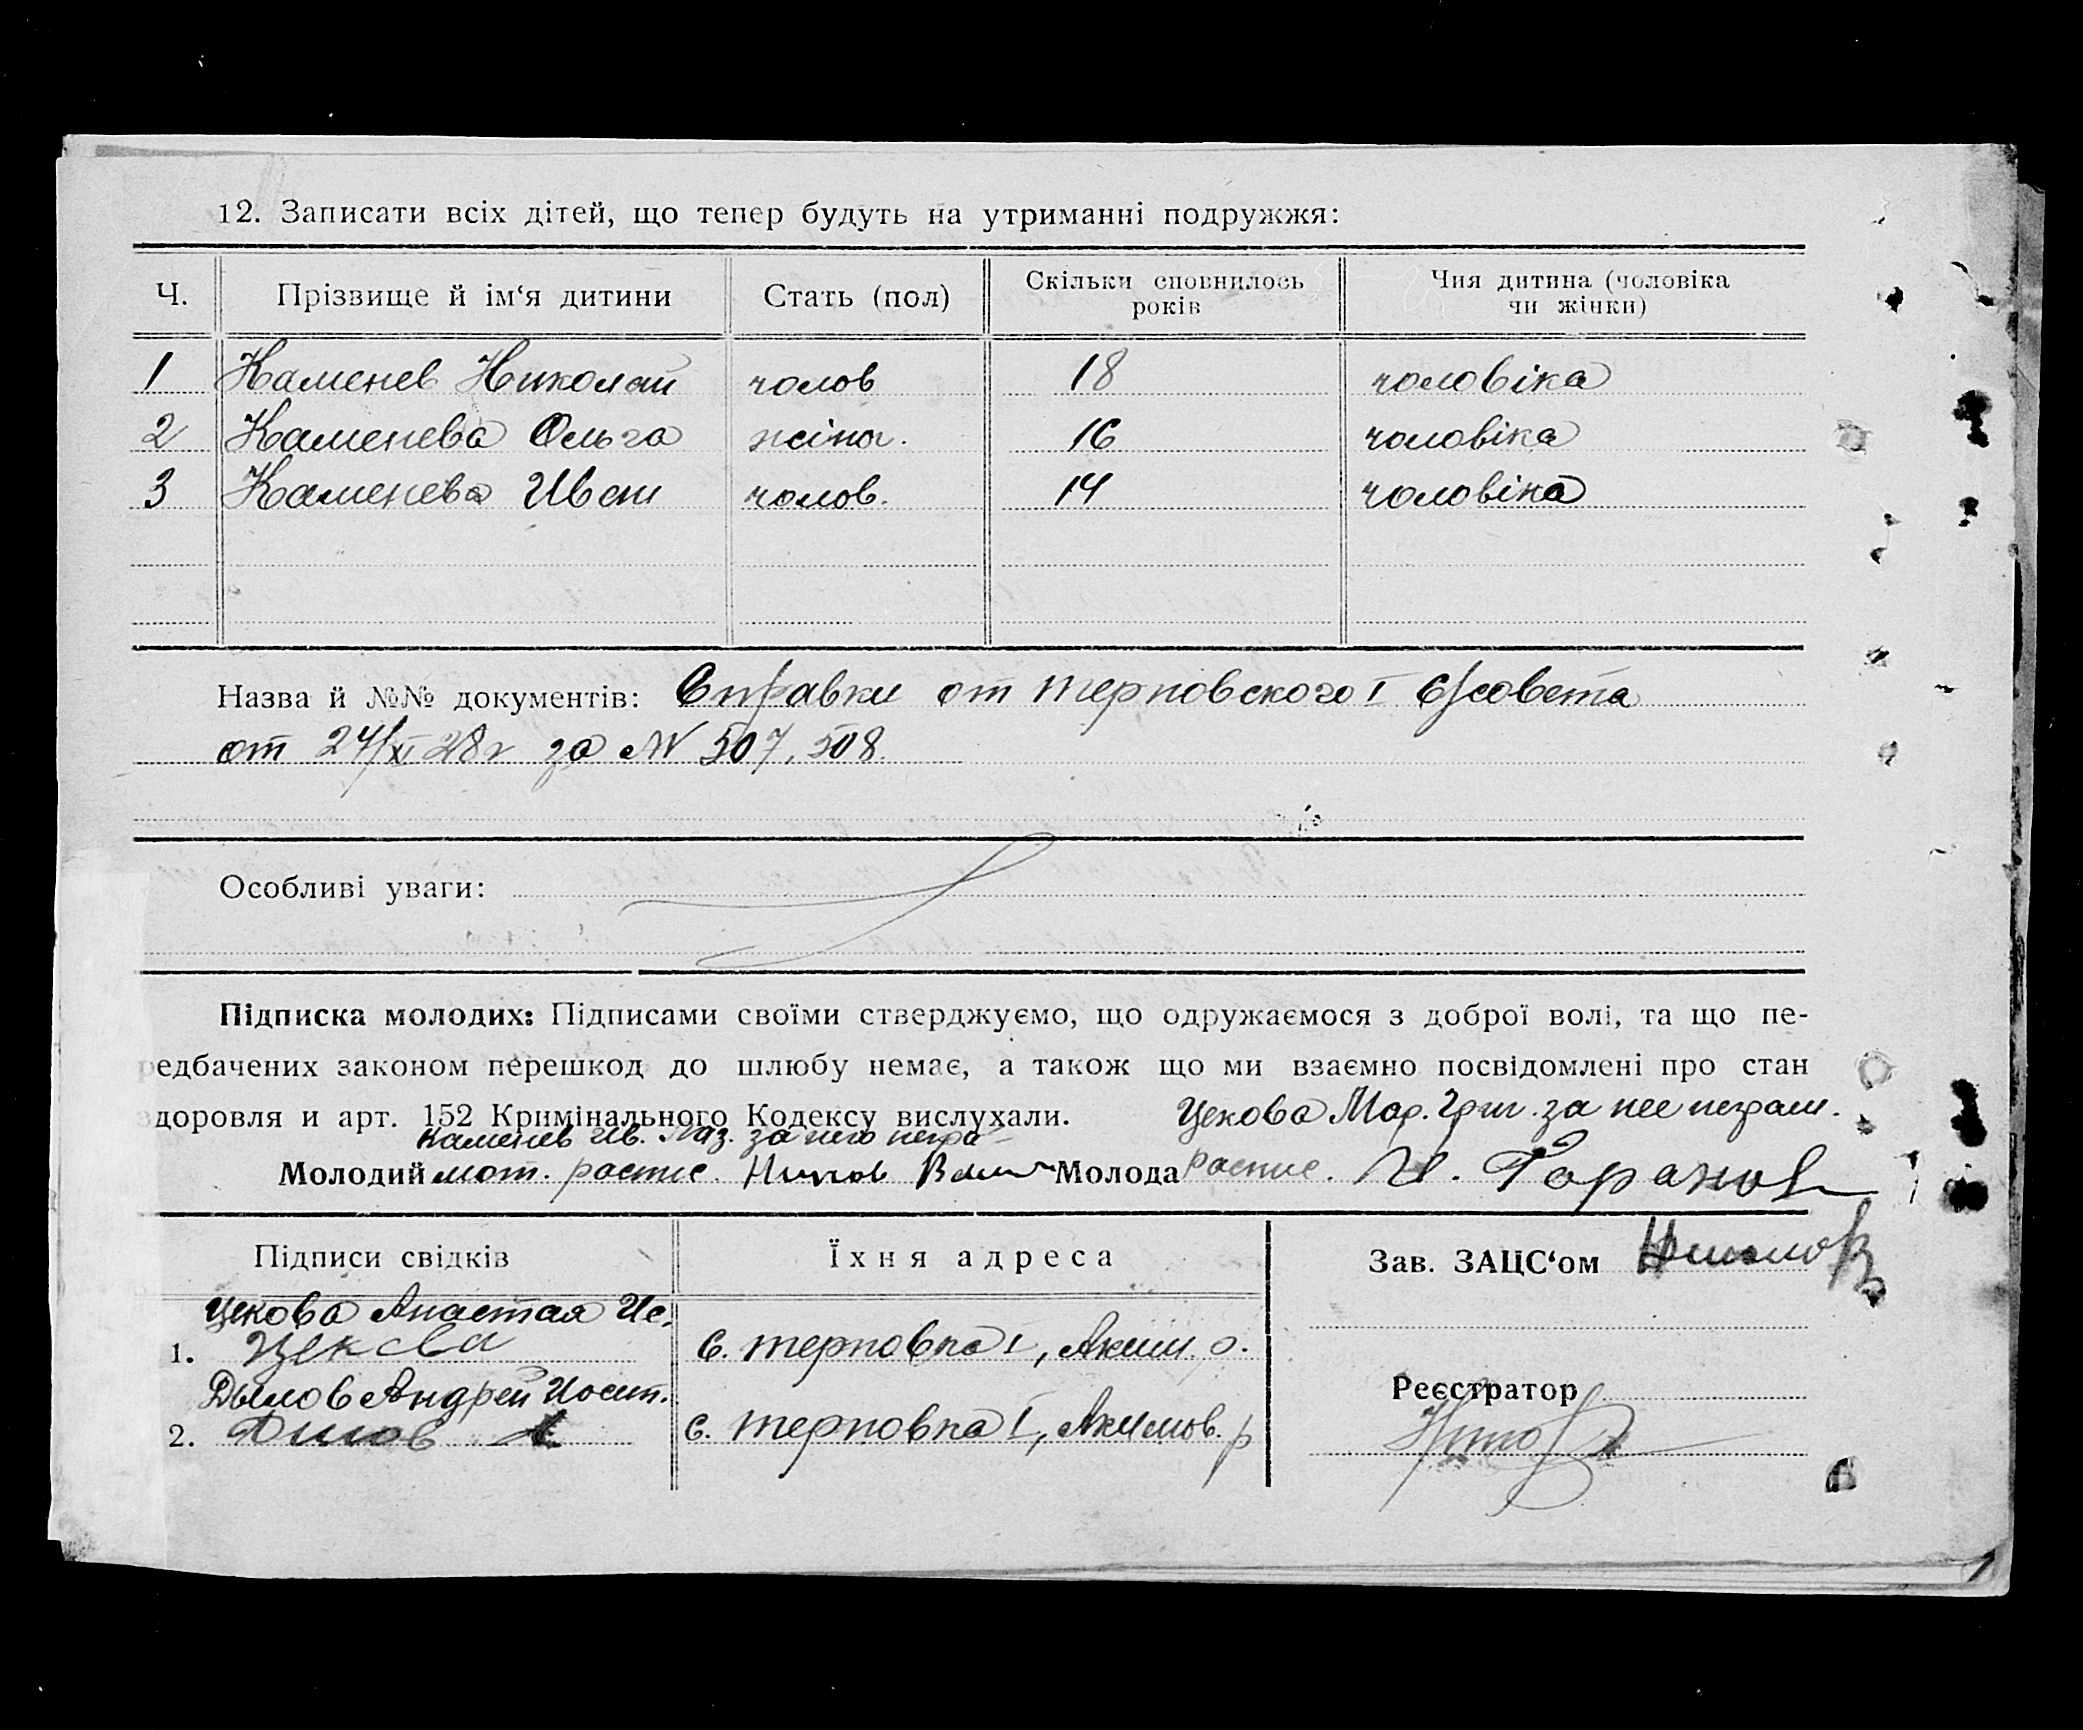 12. Записати всіх дітей, що тепер будуть на утриманні подружжя:
Ч. Прізвище й ім‘я дитини Стать (пол) Скільки сповнилось років Чия дитина (чоловіка чи жінки)
1 Каменев Николай чолов 18 чоловіка
2 Каменева Ольга жіноч. 16 чоловіка
3 Каменева Иван чолов. 14 чоловіка
Назва й №№ документів: Справки от терповского I с/совета
от 24/XI 28 г за N 507, 508.
Особливі уваги:
Підписка молодих: Підписами своїми стверджуємо, що одружаємося з доброї волі, та що пе-
редбачених законом перешкод до шлюбу немає, а також що ми взаємно посвідомлені про стан
здоровля и арт. 152 Кримінального Кодексу вислухали. Цекова Мар. Григ. за нее неграм.
Каменев Ив. Лаз. за него негра-
Молодий мот. распис. Молода распис. И. Гаранов
Підписи свідків Їхня адреса Зав. ЗАЦС‘ом
Цекова Анастая Ис.
1. Цекова с. терповка I, Аким. р.
Дымов Андрей Иосип. Реєстратор
2. Димов А с. терповка I, Акимов. р